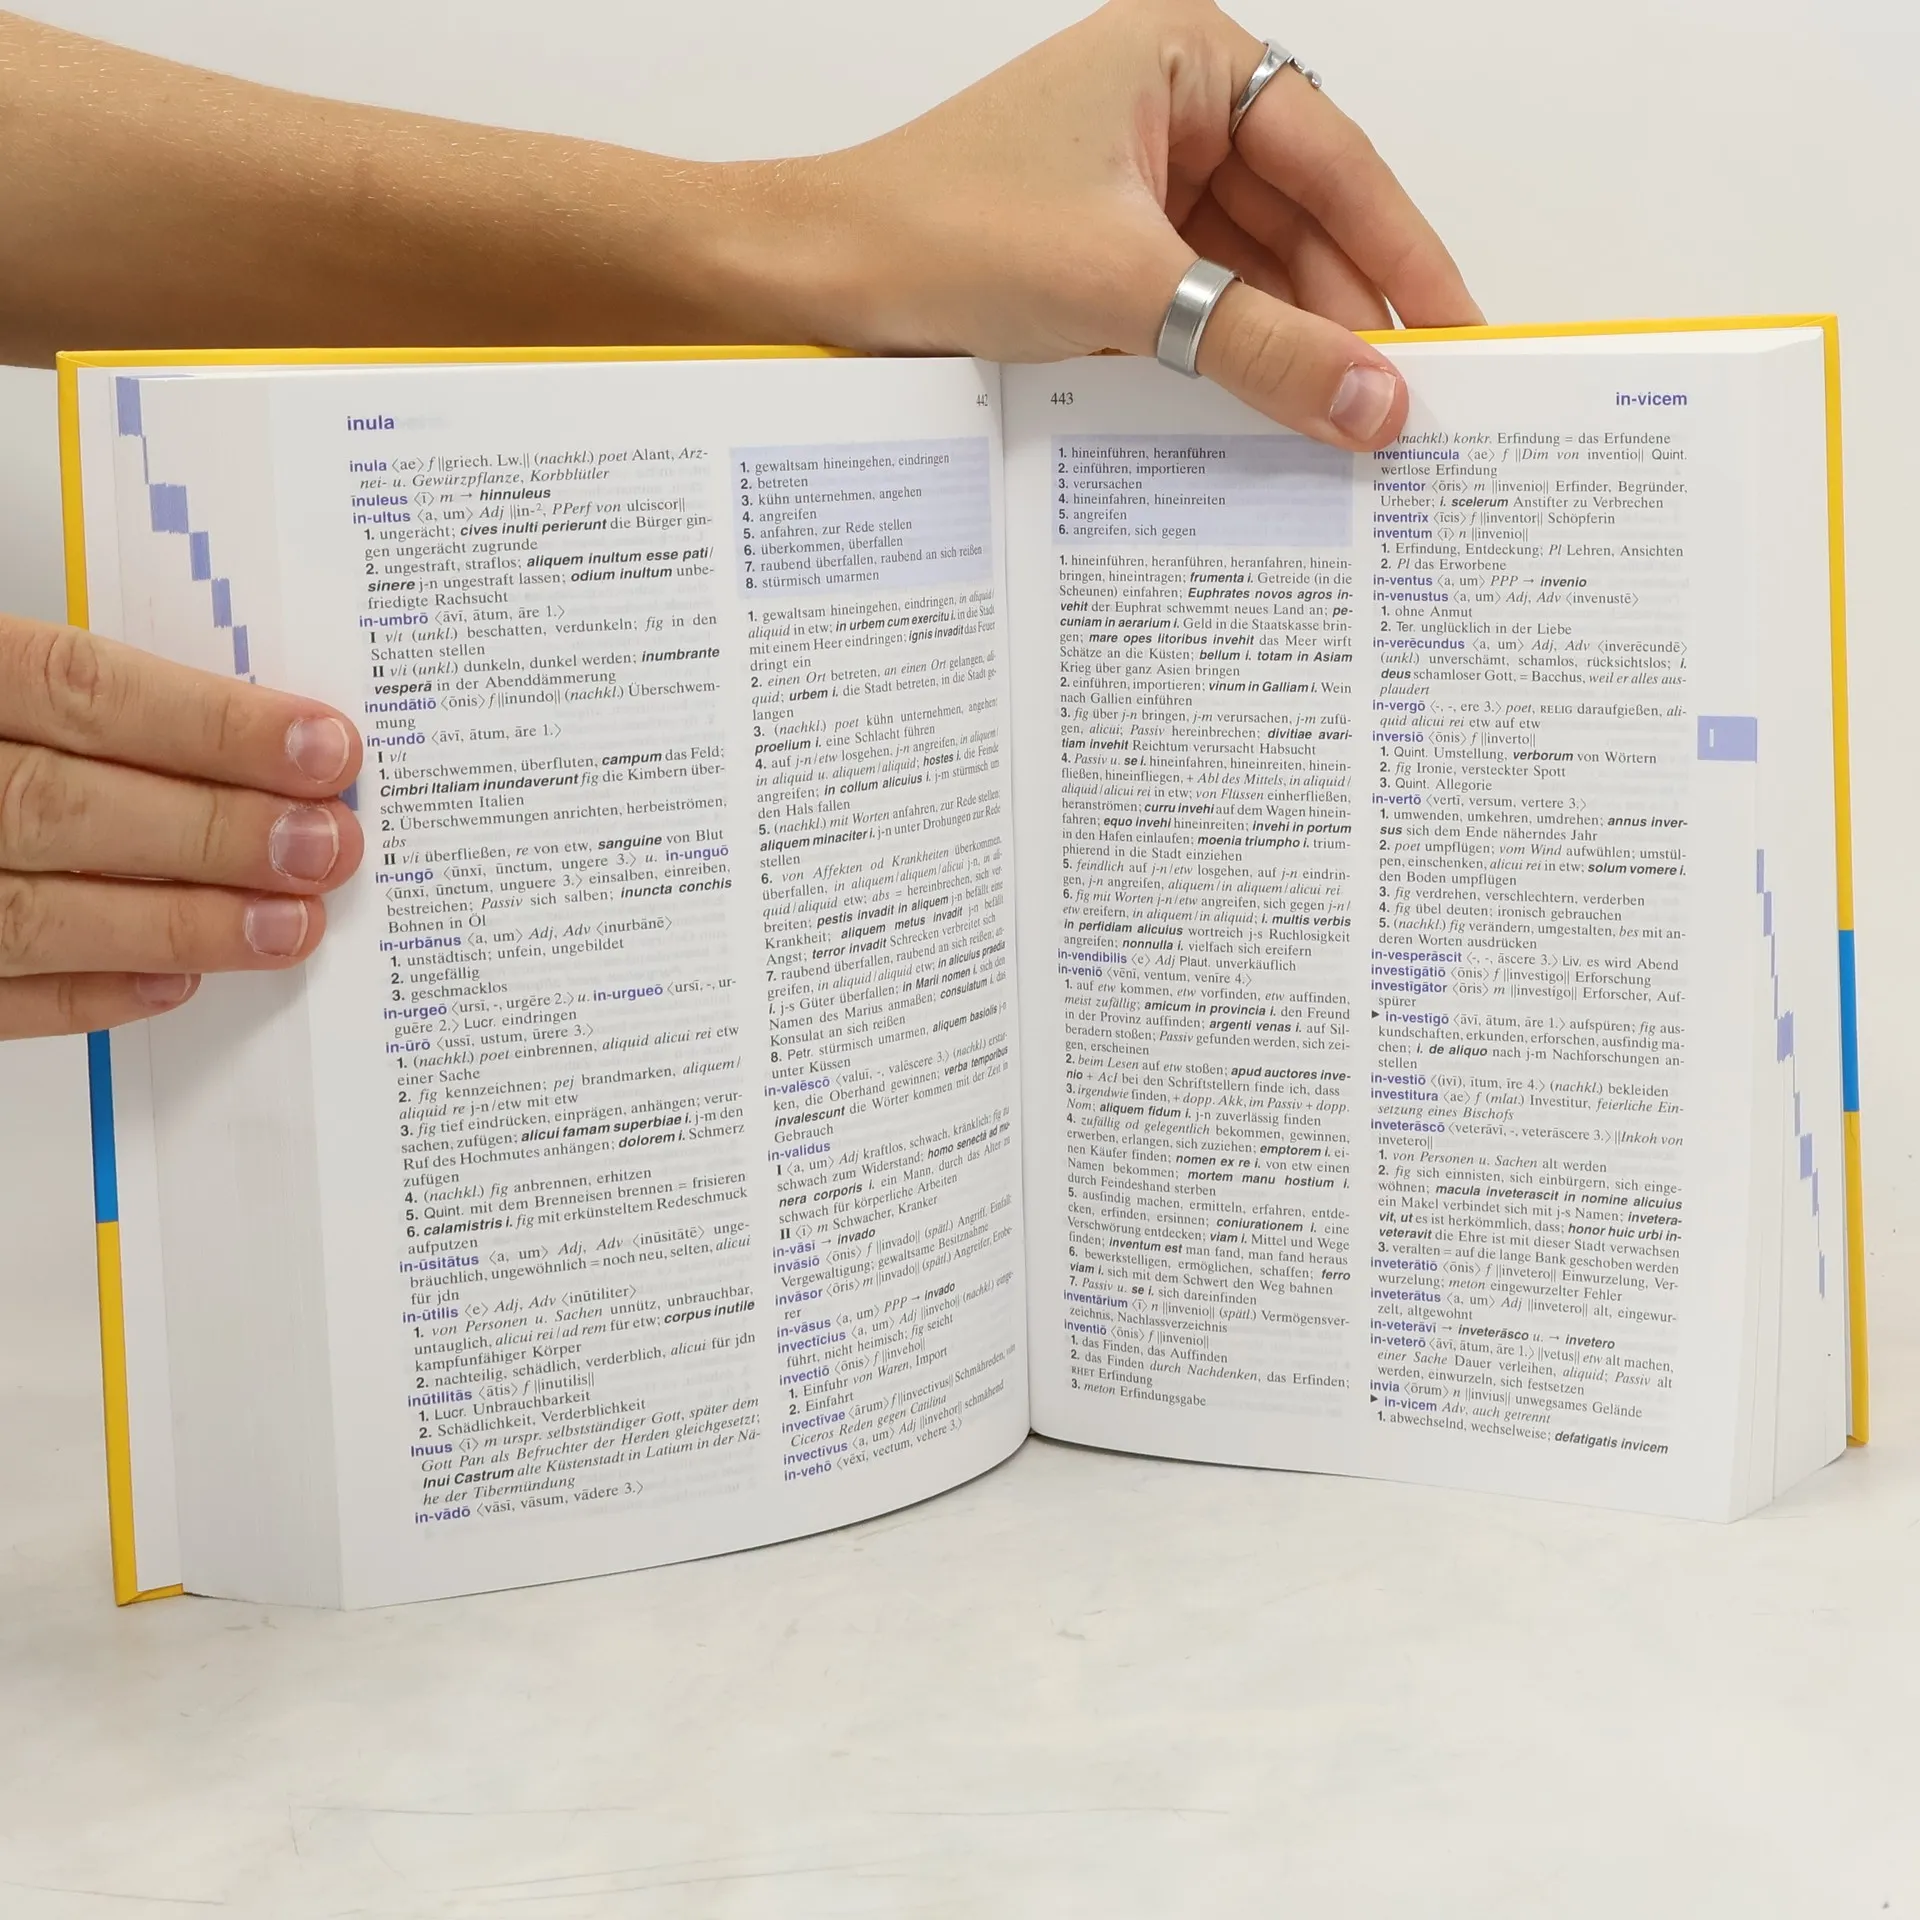 inula
442
inula ⟨ae⟩ f ||griech. Lw.|| (nachkl.) poet Alant, Arz-
nei- u. Gewürzpflanze, Korbblütler
īnuleus ⟨ī⟩ m → hinnuleus
in-ultus ⟨a, um⟩ Adj ||in-², PPerf von ulciscor||
1. ungerächt; cives inulti perierunt die Bürger gin-
gen ungerächt zugrunde
2. ungestraft, straflos; aliquem inultum esse pati/
sinere j-n ungestraft lassen; odium inultum unbe-
friedigte Rachsucht
in-umbrō ⟨āvī, ātum, āre 1.⟩
I v/t (unkl.) beschatten, verdunkeln; fig in den
Schatten stellen
II v/i (unkl.) dunkeln, dunkel werden; inumbrante
vesperā in der Abenddämmerung
inundātiō ⟨ōnis⟩ f ||inundo|| (nachkl.) Überschwem-
mung
in-undō ⟨āvī, ātum, āre 1.⟩
I v/t
1. überschwemmen, überfluten, campum das Feld;
Cimbri Italiam inundaverunt fig die Kimbern über-
schwemmten Italien
2. Überschwemmungen anrichten, herbeiströmen,
abs
II v/i überfließen, re von etw, sanguine von Blut
in-ungō ⟨ūnxī, ūnctum, ungere 3.⟩ u. in-unguō
⟨ūnxī, ūnctum, unguere 3.⟩ einsalben, einreiben,
bestreichen; Passiv sich salben; inuncta conchis
Bohnen in Öl
in-urbānus ⟨a, um⟩ Adj, Adv ⟨inurbānē⟩
1. unstädtisch; unfein, ungebildet
2. ungefällig
3. geschmacklos
in-urgeō ⟨ursī, -, urgēre 2.⟩ u. in-urgueō ⟨ursī, -, ur-
guēre 2.⟩ Lucr. eindringen
in-ūrō ⟨ussī, ustum, ūrere 3.⟩
1. (nachkl.) poet einbrennen, aliquid alicui rei etw
einer Sache
2. fig kennzeichnen; pej brandmarken, aliquem/
aliquid re j-n/etw mit etw
3. fig tief eindrücken, einprägen, anhängen; verur-
sachen, zufügen; alicui famam superbiae i. j-m den
Ruf des Hochmutes anhängen; dolorem i. Schmerz
zufügen
4. (nachkl.) fig anbrennen, erhitzen
5. Quint. mit dem Brenneisen brennen = frisieren
6. calamistris i. fig mit erkünsteltem Redeschmuck
aufputzen
in-ūsitātus ⟨a, um⟩ Adj, Adv ⟨inūsitātē⟩ unge-
bräuchlich, ungewöhnlich = noch neu, selten, alicui
für jdn
in-ūtilis ⟨e⟩ Adj, Adv ⟨inūtiliter⟩
1. von Personen u. Sachen unnütz, unbrauchbar,
untauglich, alicui rei/ad rem für etw; corpus inutile
kampfunfähiger Körper
2. nachteilig, schädlich, verderblich, alicui für jdn
inūtilitās ⟨ātis⟩ f ||inutilis||
1. Lucr. Unbrauchbarkeit
2. Schädlichkeit, Verderblichkeit
Inuus ⟨ī⟩ m urspr. selbstständiger Gott, später dem
Gott Pan als Befruchter der Herden gleichgesetzt;
Inui Castrum alte Küstenstadt in Latium in der Nä-
he der Tibermündung
in-vādō ⟨vāsī, vāsum, vādere 3.⟩
1. gewaltsam hineingehen, eindringen
2. betreten
3. kühn unternehmen, angehen
4. angreifen
5. anfahren, zur Rede stellen
6. überkommen, überfallen
7. raubend überfallen, raubend an sich reißen
8. stürmisch umarmen
1. gewaltsam hineingehen, eindringen, in aliquid/
aliquid in etw; in urbem cum exercitu i. in die Stadt
mit einem Heer eindringen; ignis invadit das Feuer
dringt ein
2. einen Ort betreten, an einen Ort gelangen, ali-
quid; urbem i. die Stadt betreten, in die Stadt ge-
langen
3. (nachkl.) poet kühn unternehmen, angehen;
proelium i. eine Schlacht führen
4. auf j-n/etw losgehen, j-n angreifen, in aliquem/
in aliquid u. aliquem/aliquid; hostes i. die Feinde
angreifen; in collum alicuius i. j-m stürmisch um
den Hals fallen
5. (nachkl.) mit Worten anfahren, zur Rede stellen;
aliquem minaciter i. j-n unter Drohungen zur Rede
stellen
6. von Affekten od Krankheiten überkommen,
überfallen, in aliquem/aliquem/alicui j-n, in ali-
quid/aliquid etw; abs = hereinbrechen, sich ver-
breiten; pestis invadit in aliquem j-n befällt eine
Krankheit; aliquem metus invadit j-n befällt
Angst; terror invadit Schrecken verbreitet sich
7. raubend überfallen, raubend an sich reißen; an-
greifen, in aliquid/aliquid etw; in alicuius praedia
i. j-s Güter überfallen; in Marii nomen i. sich den
Namen des Marius anmaßen; consulatum i. das
Konsulat an sich reißen
8. Petr. stürmisch umarmen, aliquem basiolis j-n
unter Küssen
in-valēscō ⟨valuī, -, valēscere 3.⟩ (nachkl.) erstar-
ken, die Oberhand gewinnen; verba temporibus
invalescunt die Wörter kommen mit der Zeit in
Gebrauch
in-validus
I ⟨a, um⟩ Adj kraftlos, schwach, kränklich; fig zu
schwach zum Widerstand; homo senectā ad mu-
nera corporis i. ein Mann, durch das Alter zu
schwach für körperliche Arbeiten
II ⟨ī⟩ m Schwacher, Kranker
in-vāsī → invado
invāsiō ⟨ōnis⟩ f ||invado|| (spätl.) Angriff, Einfall;
Vergewaltigung; gewaltsame Besitznahme
invāsor ⟨ōris⟩ m ||invado|| (spätl.) Angreifer, Erobe-
rer
in-vāsus ⟨a, um⟩ PPP → invado
invecticius ⟨a, um⟩ Adj ||inveho|| (nachkl.) einge-
führt, nicht heimisch; fig seicht
invectiō ⟨ōnis⟩ f ||inveho||
1. Einfuhr von Waren, Import
2. Einfahrt
invectīvae ⟨ārum⟩ f ||invectivus|| Schmähreden, von
Ciceros Reden gegen Catilina
invectīvus ⟨a, um⟩ Adj ||invehor|| schmähend
in-vehō ⟨vēxī, vectum, vehere 3.⟩
443
in-vicem
1. hineinführen, heranführen
2. einführen, importieren
3. verursachen
4. hineinfahren, hineinreiten
5. angreifen
6. angreifen, sich gegen
1. hineinführen, heranführen, heranfahren, hinein-
bringen, hineintragen; frumenta i. Getreide (in die
Scheunen) einfahren; Euphrates novos agros in-
vehit der Euphrat schwemmt neues Land an; pe-
cuniam in aerarium i. Geld in die Staatskasse brin-
gen; mare opes litoribus invehit das Meer wirft
Schätze an die Küsten; bellum i. totam in Asiam
Krieg über ganz Asien bringen
2. einführen, importieren; vinum in Galliam i. Wein
nach Gallien einführen
3. fig über j-n bringen, j-m verursachen, j-m zufü-
gen, alicui; Passiv hereinbrechen; divitiae avari-
tiam invehit Reichtum verursacht Habsucht
4. Passiv u. se i. hineinfahren, hineinreiten, hinein-
fließen, hineinfliegen, + Abl des Mittels, in aliquid/
aliquid/alicui rei in etw; von Flüssen einherfließen,
heranströmen; curru invehi auf dem Wagen hinein-
fahren; equo invehi hineinreiten; invehi in portum
in den Hafen einlaufen; moenia triumpho i. trium-
phierend in die Stadt einziehen
5. feindlich auf j-n/etw losgehen, auf j-n eindrin-
gen, j-n angreifen, aliquem/in aliquem/alicui rei
6. fig mit Worten j-n/etw angreifen, sich gegen j-n/
etw ereifern, in aliquem/in aliquid; i. multis verbis
in perfidiam alicuius wortreich j-s Ruchlosigkeit
angreifen; nonnulla i. vielfach sich ereifern
in-vendibilis ⟨e⟩ Adj Plaut. unverkäuflich
in-veniō ⟨vēnī, ventum, venīre 4.⟩
1. auf etw kommen, etw vorfinden, etw auffinden,
meist zufällig; amicum in provincia i. den Freund
in der Provinz auffinden; argenti venas i. auf Sil-
beradern stoßen; Passiv gefunden werden, sich zei-
gen, erscheinen
2. beim Lesen auf etw stoßen; apud auctores inve-
nio + AcI bei den Schriftstellern finde ich, dass
3. irgendwie finden, + dopp. Akk, im Passiv + dopp.
Nom; aliquem fidum i. j-n zuverlässig finden
4. zufällig od gelegentlich bekommen, gewinnen,
erwerben, erlangen, sich zuziehen; emptorem i. ei-
nen Käufer finden; nomen ex re i. von etw einen
Namen bekommen; mortem manu hostium i.
durch Feindeshand sterben
5. ausfindig machen, ermitteln, erfahren, entde-
cken, erfinden, ersinnen; coniurationem i. eine
Verschwörung entdecken; viam i. Mittel und Wege
finden; inventum est man fand, man fand heraus
6. bewerkstelligen, ermöglichen, schaffen; ferro
viam i. sich mit dem Schwert den Weg bahnen
7. Passiv u. se i. sich dareinfinden
inventārium ⟨ī⟩ n ||invenio|| (spätl.) Vermögensver-
zeichnis, Nachlassverzeichnis
inventiō ⟨ōnis⟩ f ||invenio||
1. das Finden, das Auffinden
2. das Finden durch Nachdenken, das Erfinden;
RHET Erfindung
3. meton Erfindungsgabe
(nachkl.) konkr. Erfindung = das Erfundene
inventiuncula ⟨ae⟩ f ||Dim von inventio|| Quint.
wertlose Erfindung
inventor ⟨ōris⟩ m ||invenio|| Erfinder, Begründer,
Urheber; i. scelerum Anstifter zu Verbrechen
inventrīx ⟨īcis⟩ f ||inventor|| Schöpferin
inventum ⟨ī⟩ n ||invenio||
1. Erfindung, Entdeckung; Pl Lehren, Ansichten
2. Pl das Erworbene
in-ventus ⟨a, um⟩ PPP → invenio
in-venustus ⟨a, um⟩ Adj, Adv ⟨invenustē⟩
1. ohne Anmut
2. Ter. unglücklich in der Liebe
in-verēcundus ⟨a, um⟩ Adj, Adv ⟨inverēcundē⟩
(unkl.) unverschämt, schamlos, rücksichtslos; i.
deus schamloser Gott, = Bacchus, weil er alles aus-
plaudert
in-vergō ⟨-, -, ere 3.⟩ poet, RELIG daraufgießen, ali-
quid alicui rei etw auf etw
inversiō ⟨ōnis⟩ f ||inverto||
1. Quint. Umstellung, verborum von Wörtern
2. fig Ironie, versteckter Spott
3. Quint. Allegorie
in-vertō ⟨vertī, versum, vertere 3.⟩
1. umwenden, umkehren, umdrehen; annus inver-
sus sich dem Ende näherndes Jahr
2. poet umpflügen; vom Wind aufwühlen; umstül-
pen, einschenken, alicui rei in etw; solum vomere i.
den Boden umpflügen
3. fig verdrehen, verschlechtern, verderben
4. fig übel deuten; ironisch gebrauchen
5. (nachkl.) fig verändern, umgestalten, bes mit an-
deren Worten ausdrücken
in-vesperāscit ⟨-, -, āscere 3.⟩ Liv. es wird Abend
investīgātiō ⟨ōnis⟩ f ||investigo|| Erforschung
investīgātor ⟨ōris⟩ m ||investigo|| Erforscher, Auf-
spürer
▶ in-vestīgō ⟨āvī, ātum, āre 1.⟩ aufspüren; fig aus-
kundschaften, erkunden, erforschen, ausfindig ma-
chen; i. de aliquo nach j-m Nachforschungen an-
stellen
in-vestiō ⟨(īvī), ītum, īre 4.⟩ (nachkl.) bekleiden
investitura ⟨ae⟩ f (mlat.) Investitur, feierliche Ein-
setzung eines Bischofs
inveterāscō ⟨veterāvī, -, veterāscere 3.⟩ ||Inkoh von
invetero||
1. von Personen u. Sachen alt werden
2. fig sich einnisten, sich einbürgern, sich einge-
wöhnen; macula inveterascit in nomine alicuius
ein Makel verbindet sich mit j-s Namen; invetera-
vit, ut es ist herkömmlich, dass; honor huic urbi in-
veteravit die Ehre ist mit dieser Stadt verwachsen
3. veralten = auf die lange Bank geschoben werden
inveterātiō ⟨ōnis⟩ f ||invetero|| Einwurzelung, Ver-
wurzelung; meton eingewurzelter Fehler
inveterātus ⟨a, um⟩ Adj ||invetero|| alt, eingewur-
zelt, altgewohnt
in-veterāvī → inveterāsco u. → invetero
in-veterō ⟨āvī, ātum, āre 1.⟩ ||vetus|| etw alt machen,
einer Sache Dauer verleihen, aliquid; Passiv alt
werden, einwurzeln, sich festsetzen
invia ⟨ōrum⟩ n ||invius|| unwegsames Gelände
▶ in-vicem Adv, auch getrennt
1. abwechselnd, wechselweise; defatigatis invicem
I